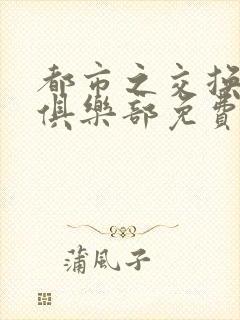 都市之交換
俱樂部免費
蒲風子